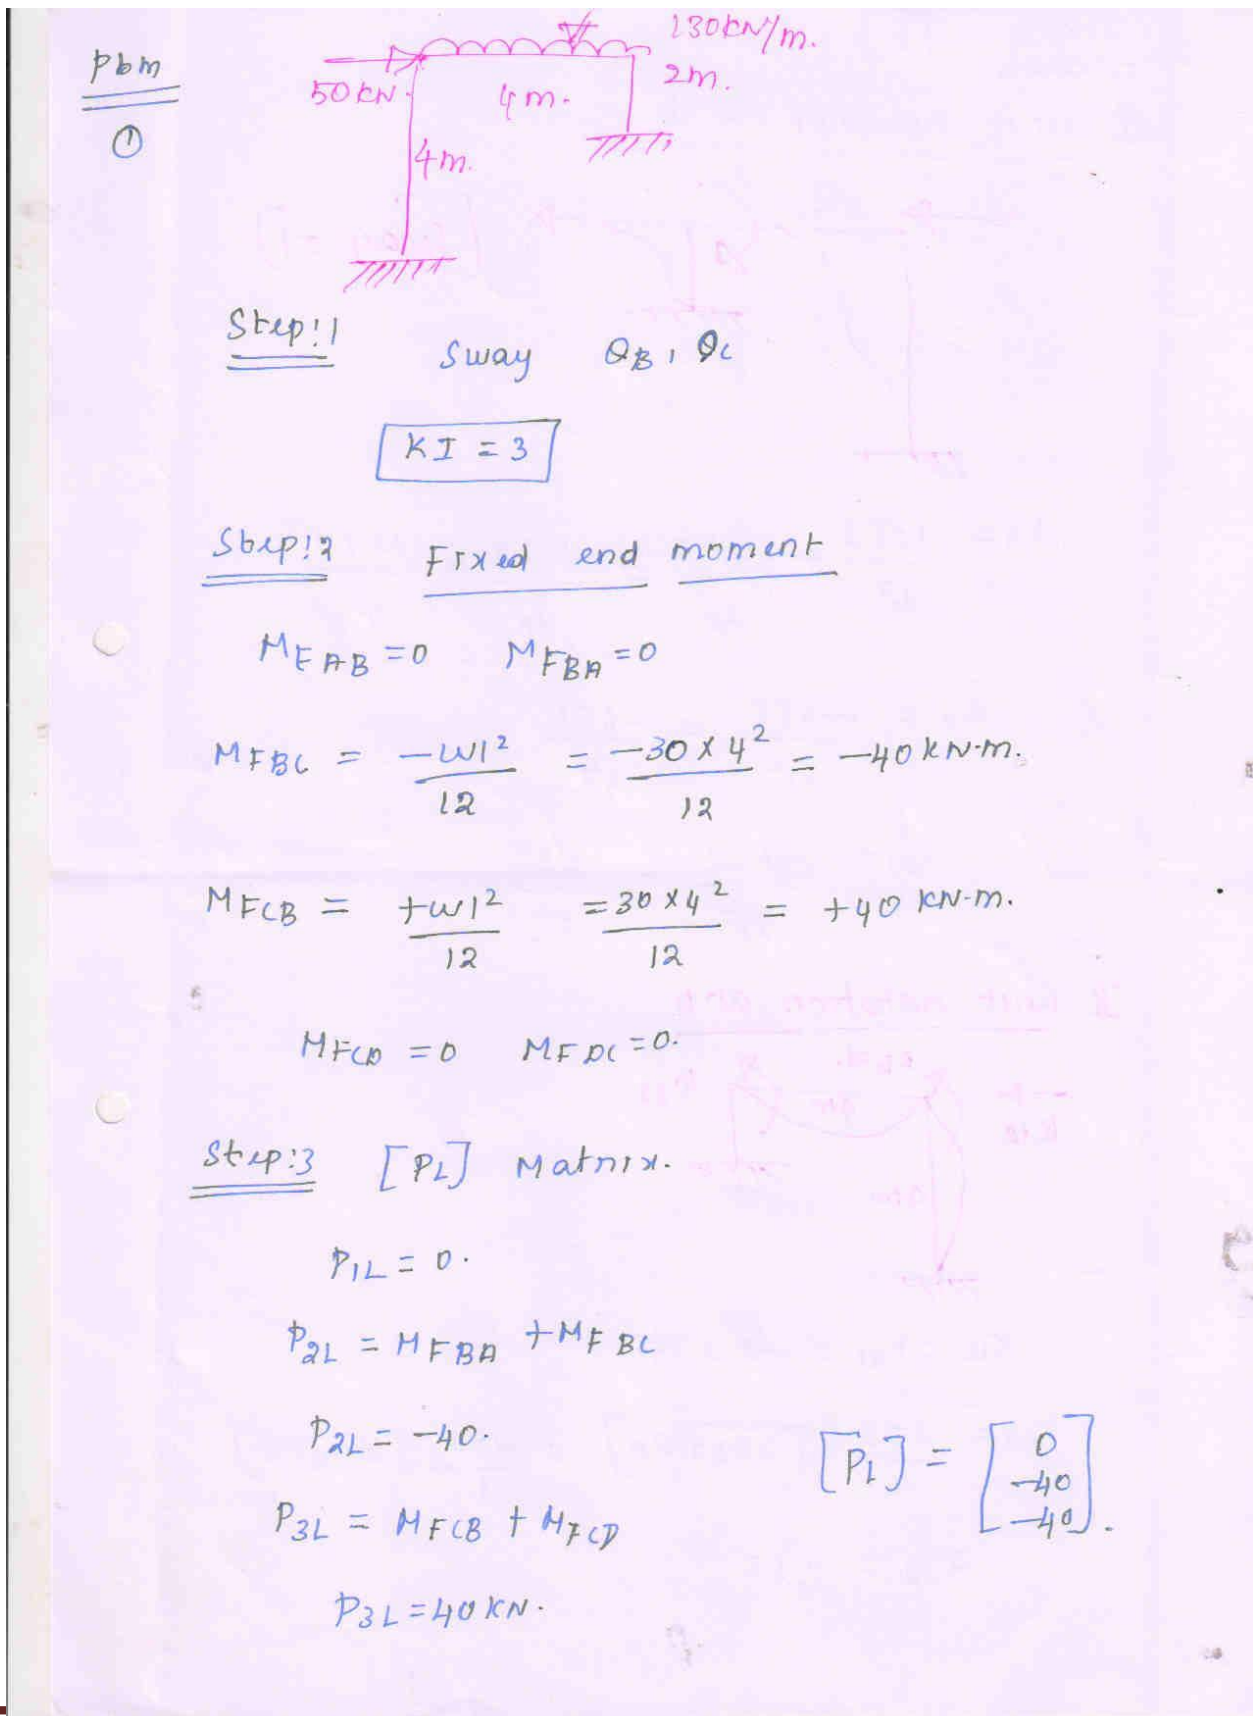 pbm
①
130kN/m.
50 kN.
4 m.
2m.
4m.
Step:1
Sway θB, θC
KI = 3
Step:2 Fixed end moment
MFAB = 0 MFBA = 0
MFBC = -wl²/12 = -30 x 4²/12 = -40 kN·m.
MFCB = +wl²/12 = 30 x 4²/12 = +40 kN-m.
MFCD = 0 MFDC = 0.
Step:3 [PL] Matrix.
P1L = 0.
P2L = MFBA + MFBC
P2L = -40.
P3L = MFCB + MFCD
P3L = 40 kN.
[PL] = [0
-40
-40].